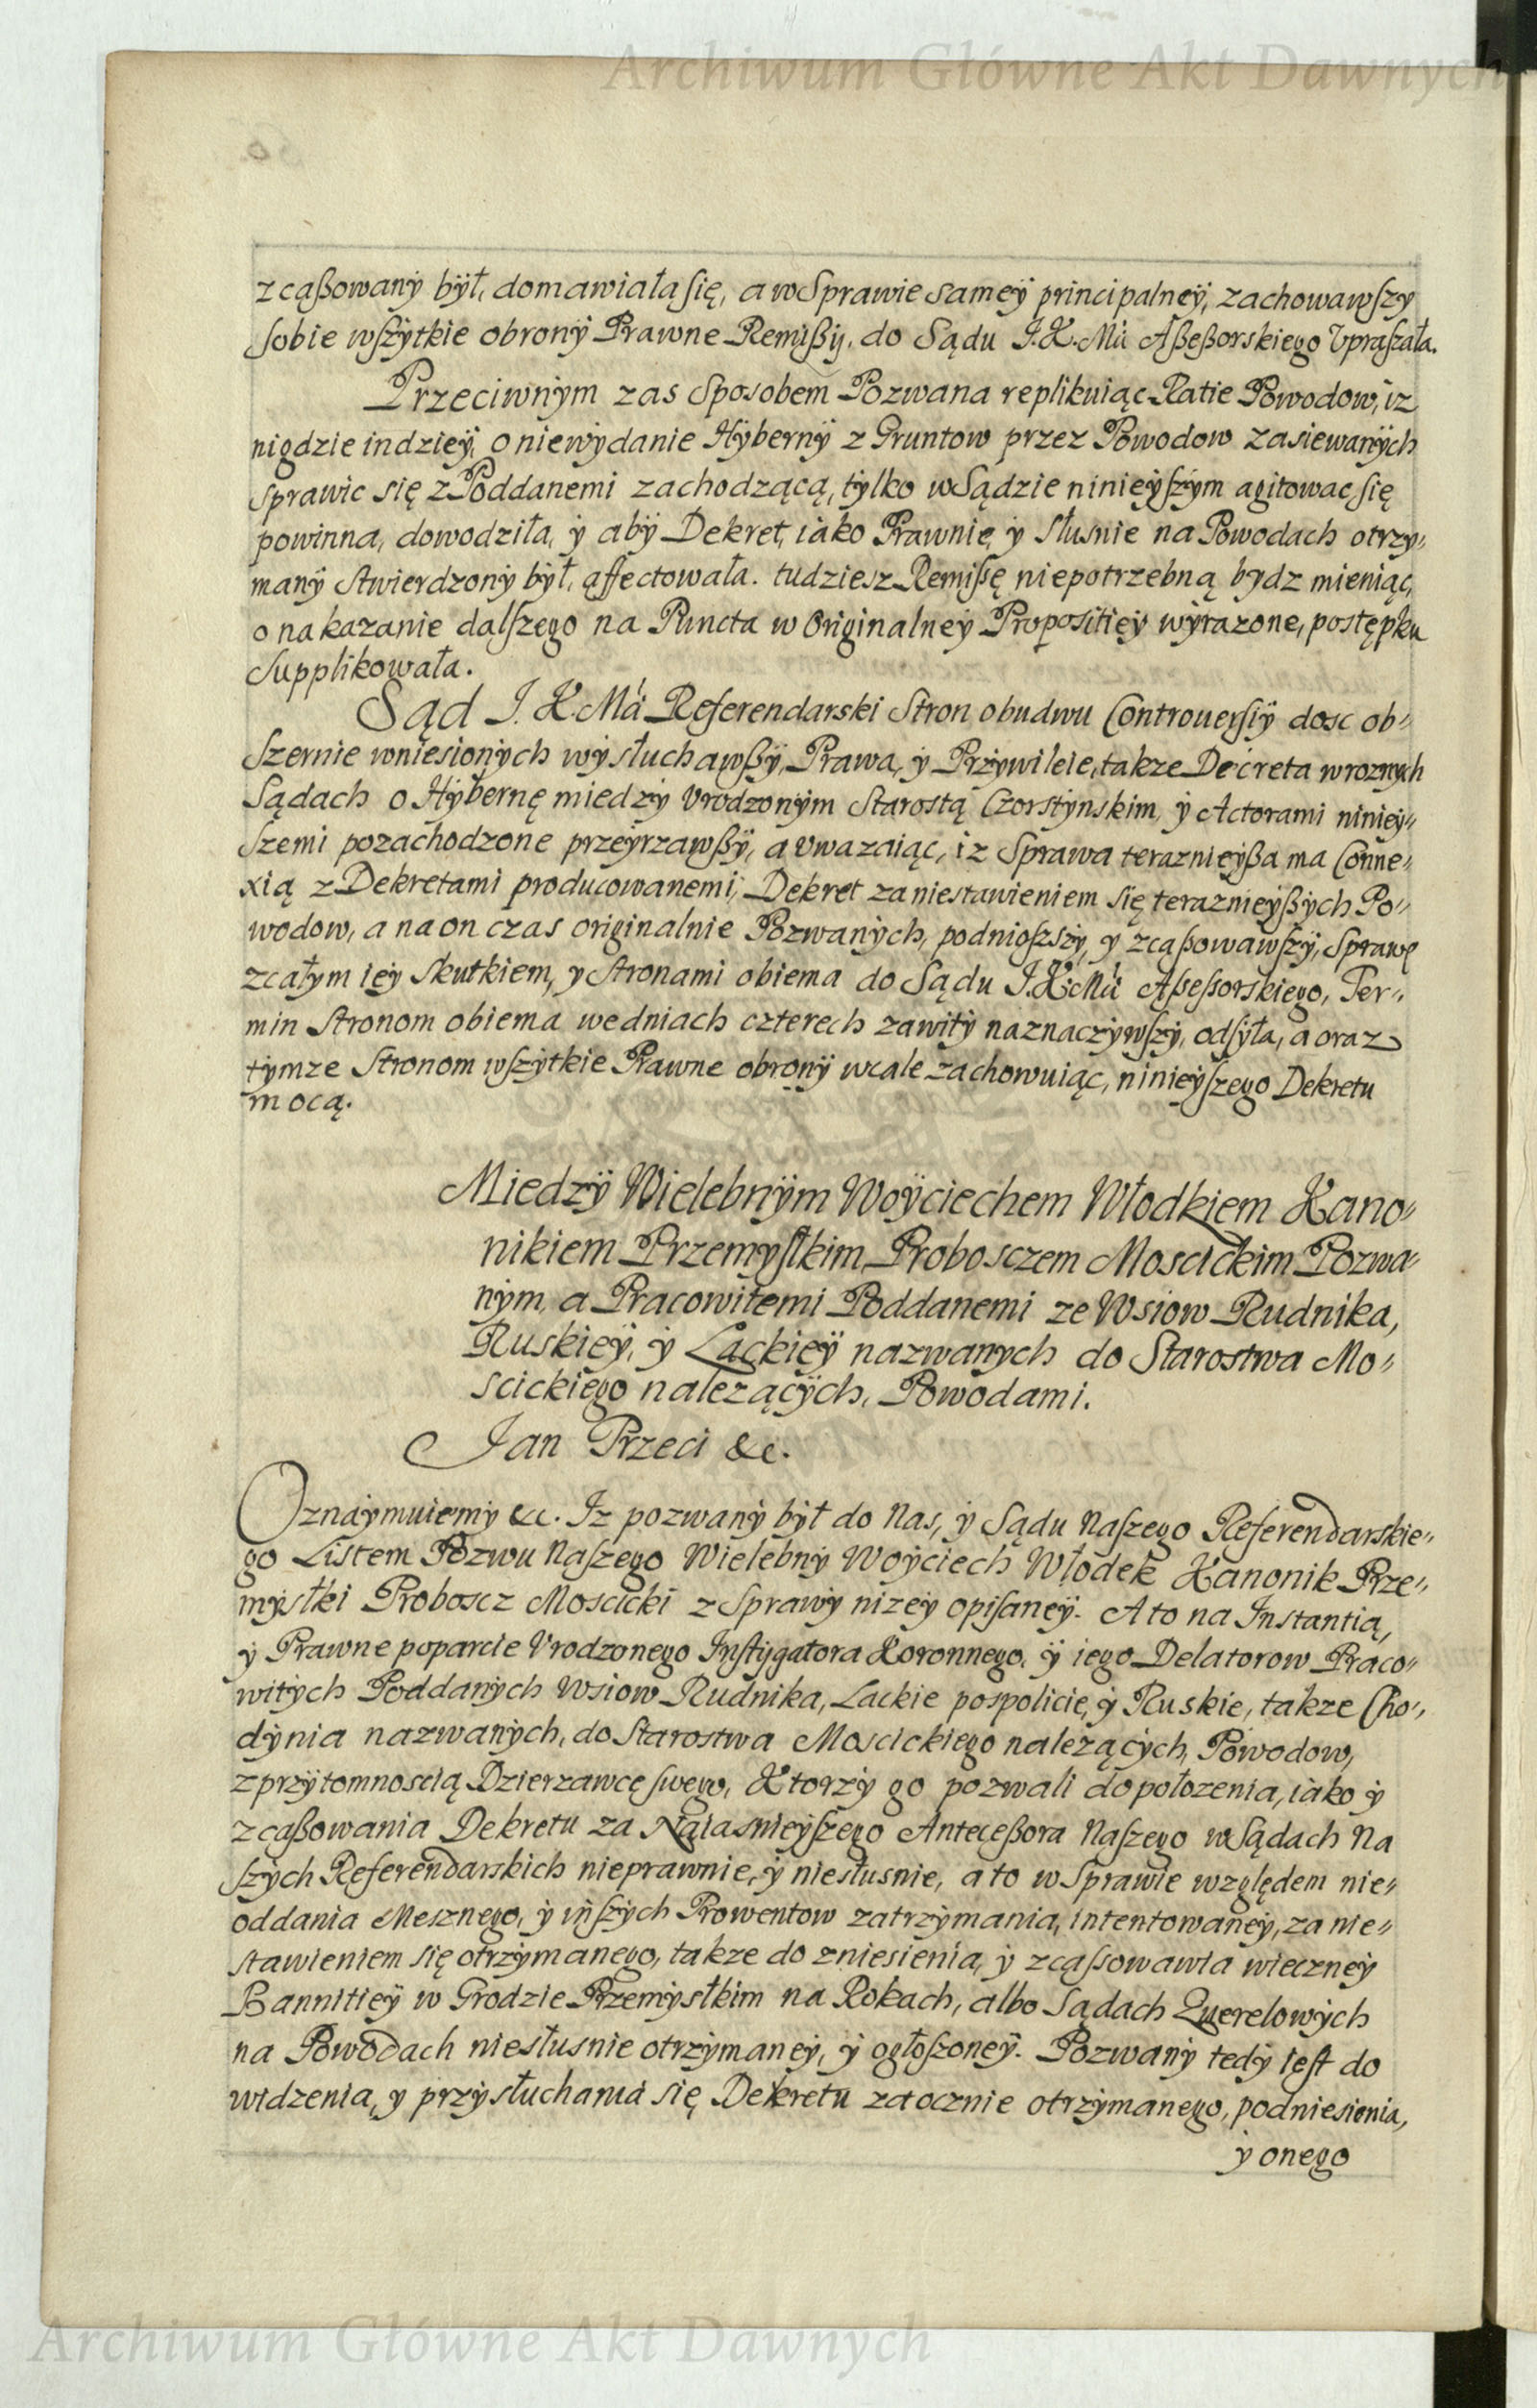 Archiwum Główne Akt Dawnych
zcąßowany był, domawiała się, a w Sprawie samey principalney, zachowawszy
sobie wszytkie obrony Prawne Remißij, do Sądu J.K.Mći Aßeßorskiego Vpraszała.
Przeciwnym zas Sposobem Pozwana replikuiąc Ratie Powodow, iz
nigdzie indziey, o niewydanie Hyberny z Gruntow przez Powodow zasiewanych
sprawic się z Poddanemi zachodzącą, tylko w Sądzie ninieyszym agitowac się
powinna, dowodziła, y aby Dekret, iako Prawnie, y słusnie na Powodach otrzy„
many stwierdzony był, affectowała. tudziesz Remissę niepotrzebną bydz mieniąc,
o nakazanie dalszego na Puncta w Originalney Propositiey wyrazone, postępku
supplikowała.
Sąd J.K.Mći Referendarski Stron obudwu Controuersiy dosc ob„
szernie wniesionych wysłuchawßy, Prawa, y Przywileie, takze Decreta w roznych
Sądach o Hybernę miedzy Vrodzonym Starostą Czorstynskim, y Actorami niniey„
szemi pozachodzone przeyrzawßy, a vwazaiąc, iz Sprawa teraznieyßa ma Conne„
xią z Dekretami producowanemi, Dekret za niestawieniem się teraznieyßych Po„
wodow, a na on czas originalnie Pozwanych, podniosszy, y zcąßowawszy, Sprawę
z całym iey skutkiem, y stronami obiema do Sądu J.K.Mći Aßeßorskiego, Ter„
min stronom obiema we dniach czterech zawity naznaczywszy, odsyła, a oraz
tymze stronom wszytkie Prawne obrony wcale zachowuiąc, ninieyszego Dekretu
mocą.
Miedzy Wielebnym Woyciechem Włodkiem Kano„
nikiem Przemyslkim, Proboszczem Moscickim Pozwa„
nym, a Pracowitemi Poddanemi ze Wsiow Rudnika,
Ruskiey, y Lackiey nazwanych do Starostwa Mo„
scickiego nalezących, Powodami.
Jan Trzeci &c.
Oznaymuiemy &c. Iz pozwany był do Nas, y Sądu Naszego Referendarskie„
go Listem Pozwu Naszego Wielebny Woyciech Włodek Kanonik Prze„
mysłki Proboscz Moscicki z Sprawy nizey opisaney. A to na Instantią,
y Prawne poparcie Vrodzonego Instygatora Koronnego, y iego Delatorow Praco„
witych Poddanych Wsiow Rudnika, Lackie pospolicie, y Ruskie, takze Cho„
dynia nazwanych, do Starostwa Moscickiego nalezących, Powodow,
z przytomnoscią Dzierzawcę swego, Ktorzy go pozwali do połozenia, iako y
zcaßowania Dekretu za Naiasnieyszego Anteceßora Naszego w Sądach Na
szych Referendarskich nieprawnie, y niesłusnie, a to w Sprawie względem nie„
oddania Mesznego, y inszych Prowentow zatrzymania, intentowaney, za nie„
stawieniem się otrzymanego, takze do zniesienia, y zcassowawia wieczney
Bannitiey w Grodzie Przemysłkim na Rokach, albo Sądach Querelowych
na Powodach niesłusnie otrzymaney, y ogłoszoney. Pozwany tedy iest do
widzenia, y przysłuchania się Dekretu zaocznie otrzymanego, podniesienia,
y onego
Archiwum Główne Akt Dawnych